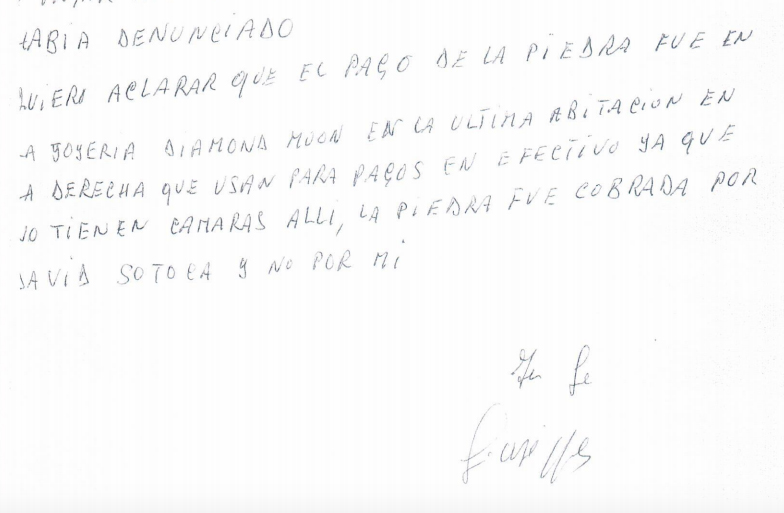 ABIA DENUNCIADO
UIERO ACLARAR QUE EL PAGO DE LA PIEDRA FUE EN
A JOYERIA DIAMOND MOON EN LA ULTIMA ABITACION EN
A DERECHA QUE USAN PARA PAGOS EN EFECTIVO YA QUE
O TIENEN CAMARAS ALLI, LA PIEDRA FUE COBRADA POR
AVID SOTOCA Y NO POR MI